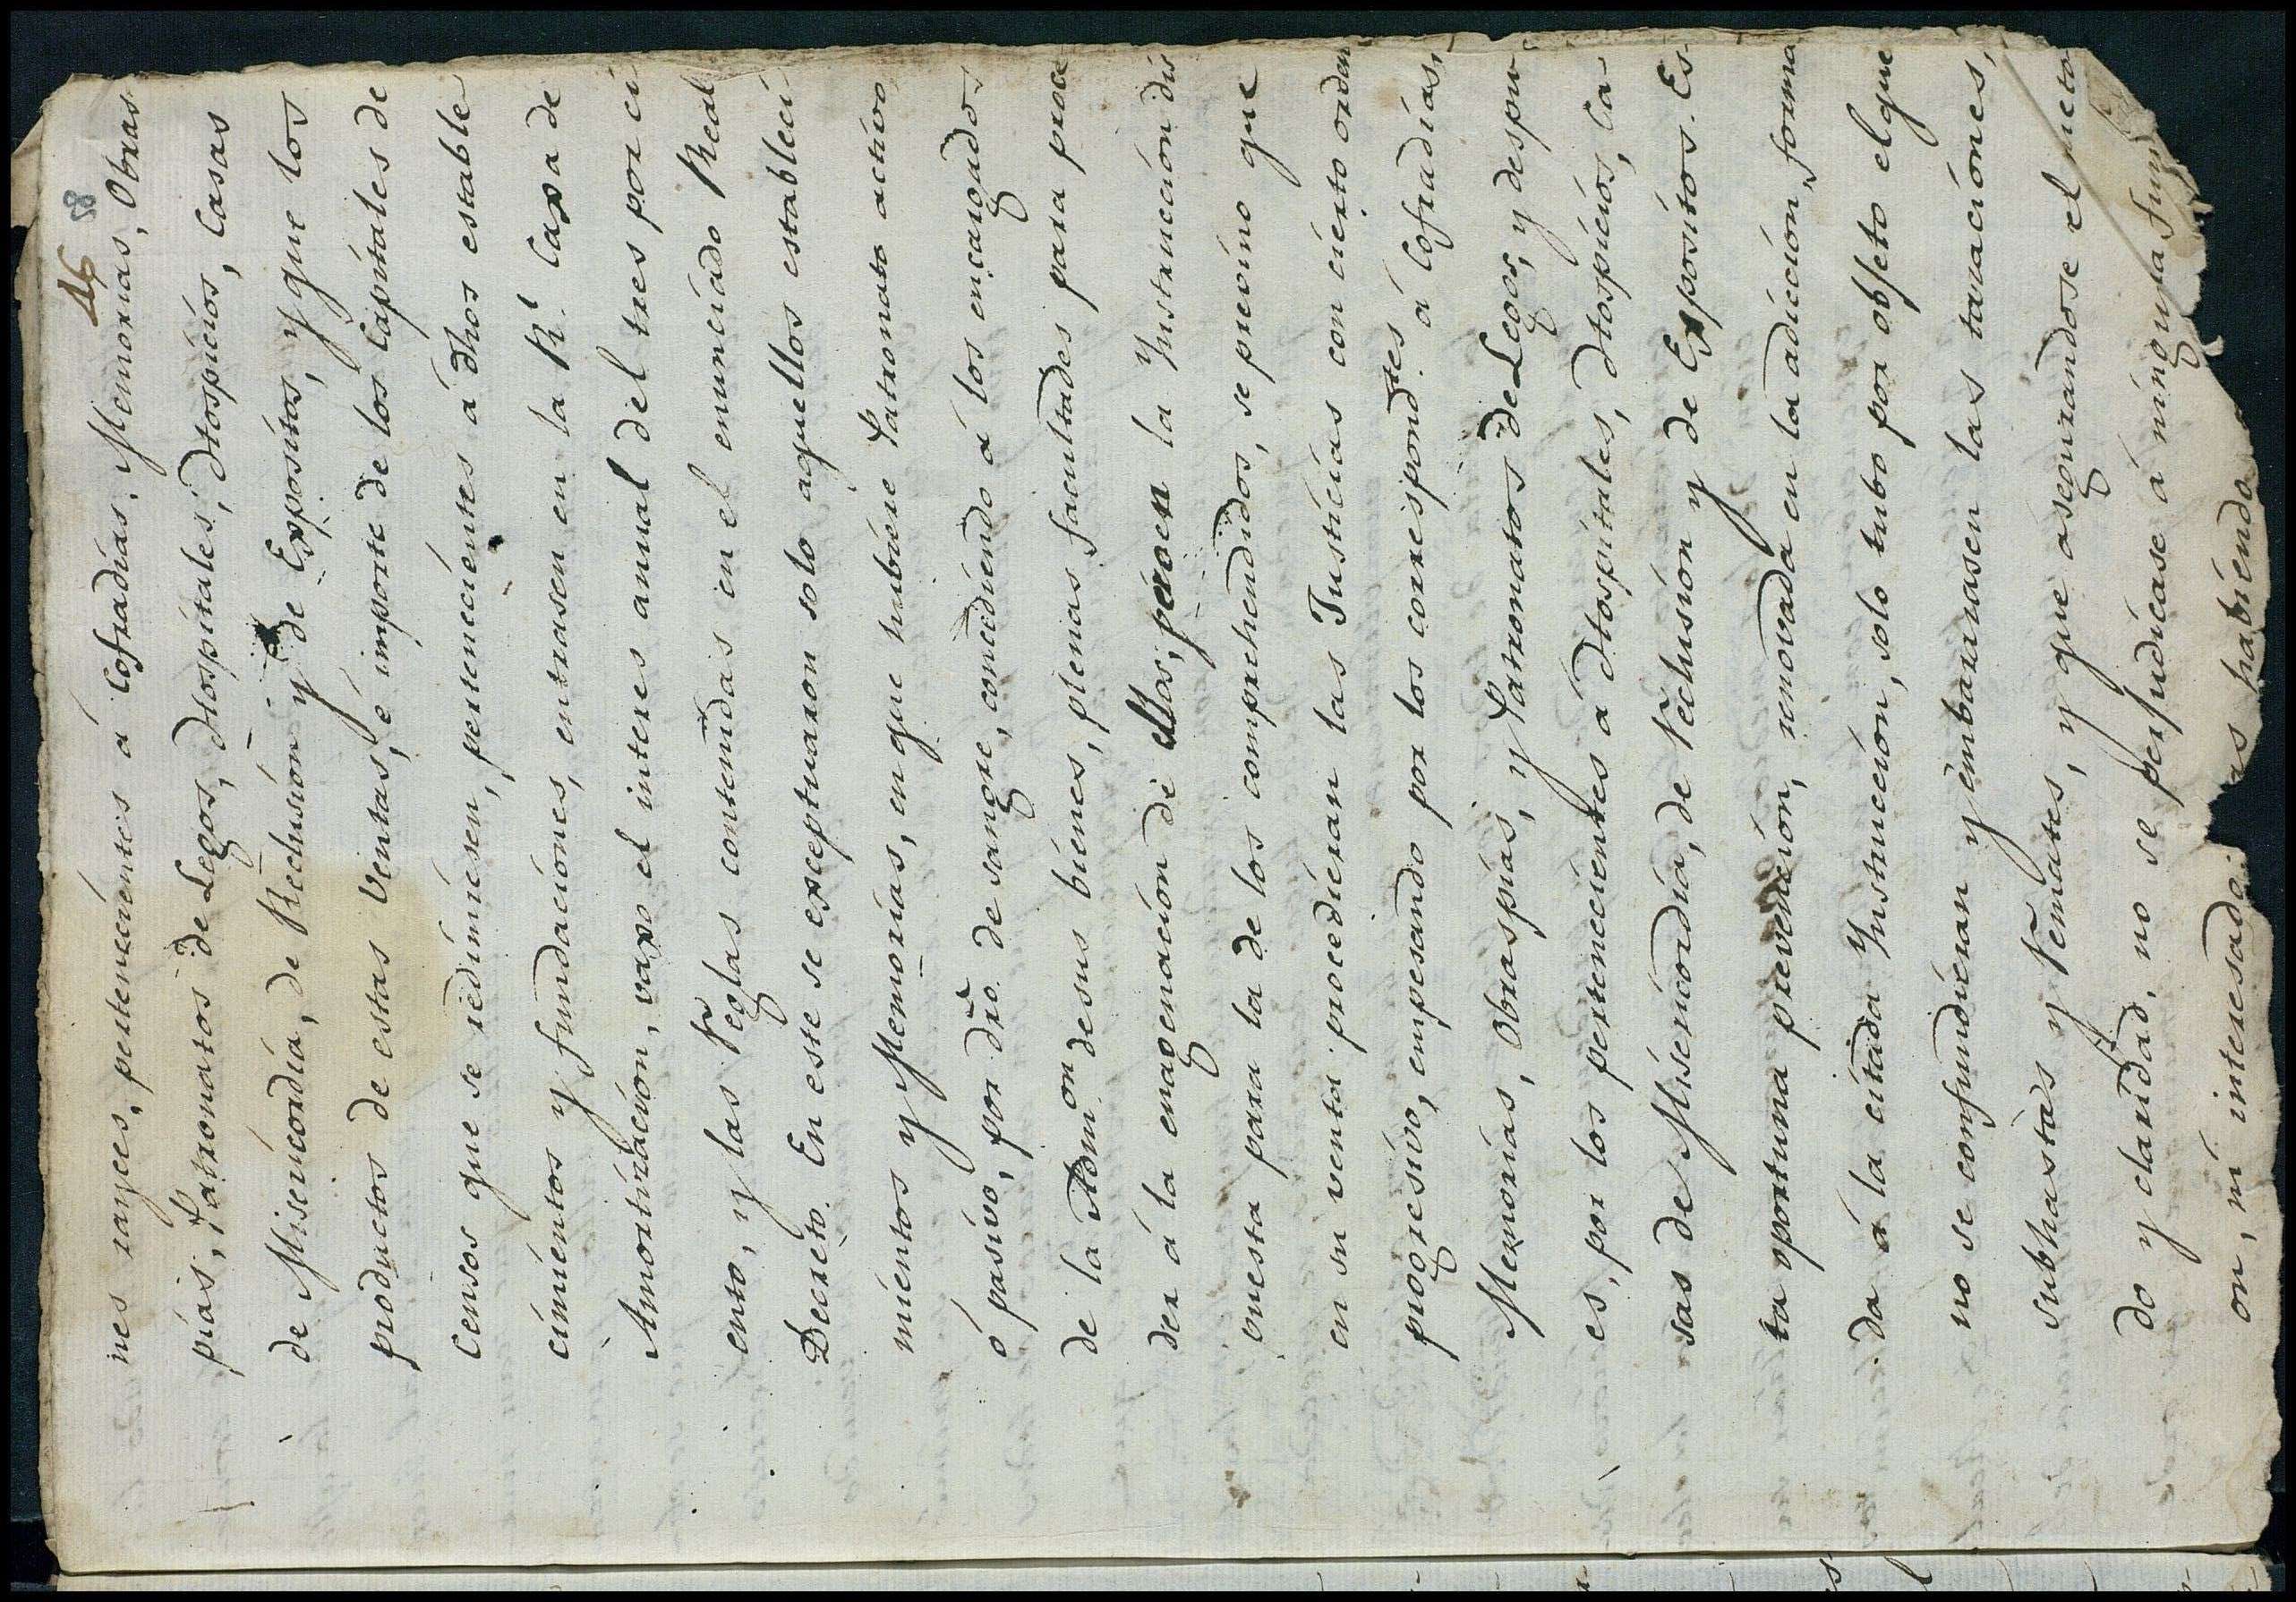 46
58
nes rayces, pertenecientes á Cofradías, Memorias, Obras
pías, Patronatos de Legos, Hospitales, Hospicios, Casas
de Misericordia, de Reclusión y de Expositos, y que los
productos de estas Ventas, é importe de los Capitales de
Censos que se redimiesen, pertenecientes á dhos estable
cimientos y fundaciones, entrasen en la Rl. Caxa de
Amortización, vaxo el interes annual del tres por ci
ento, y las Reglas contenidas en el enunciado Real
Decreto. En este se exceptuaron solo aquellos estableci
mientos y Memorias, en que hubiere Patronato activo
ó pasivo, por dro. de sangre, concediendo á los encargados
de la Admon. de sus bienes, plenas facultades para proce
der á la enagenación de ellos; pero en la Instrucción dis
puesta para la de los comprehendidos, se previno que
en su venta procedieran las Justicias con cierto orden
progresivo, empesando por los correspondtes. á Cofradías,
Memorias, Obraspías, y Patronatos de Legos, y despu
es, por los pertenecientes á Hospitales, Hospicios, Ca
sas de Misericordia, de Reclusión y de Expositos. Es
ta oportuna prevención, renovada en la adicción, forma
da á la citada Instrucción, solo tubo por objeto el que
no se confundieran y embarazasen las taxaciones,
subhastas y Remates, y que asegurandose el meto
do y claridad, no se perjudicase á ninguna fun
on, ni interesado habiendo